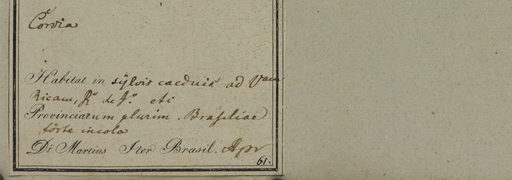 Cordia
Habitat in sylvis caeduis ad Vam
ricam, R. de J. etc
Provinciarum plurim. Brasiliae
forte incola
Dr. Martius Iter Brasil. Apr
61.